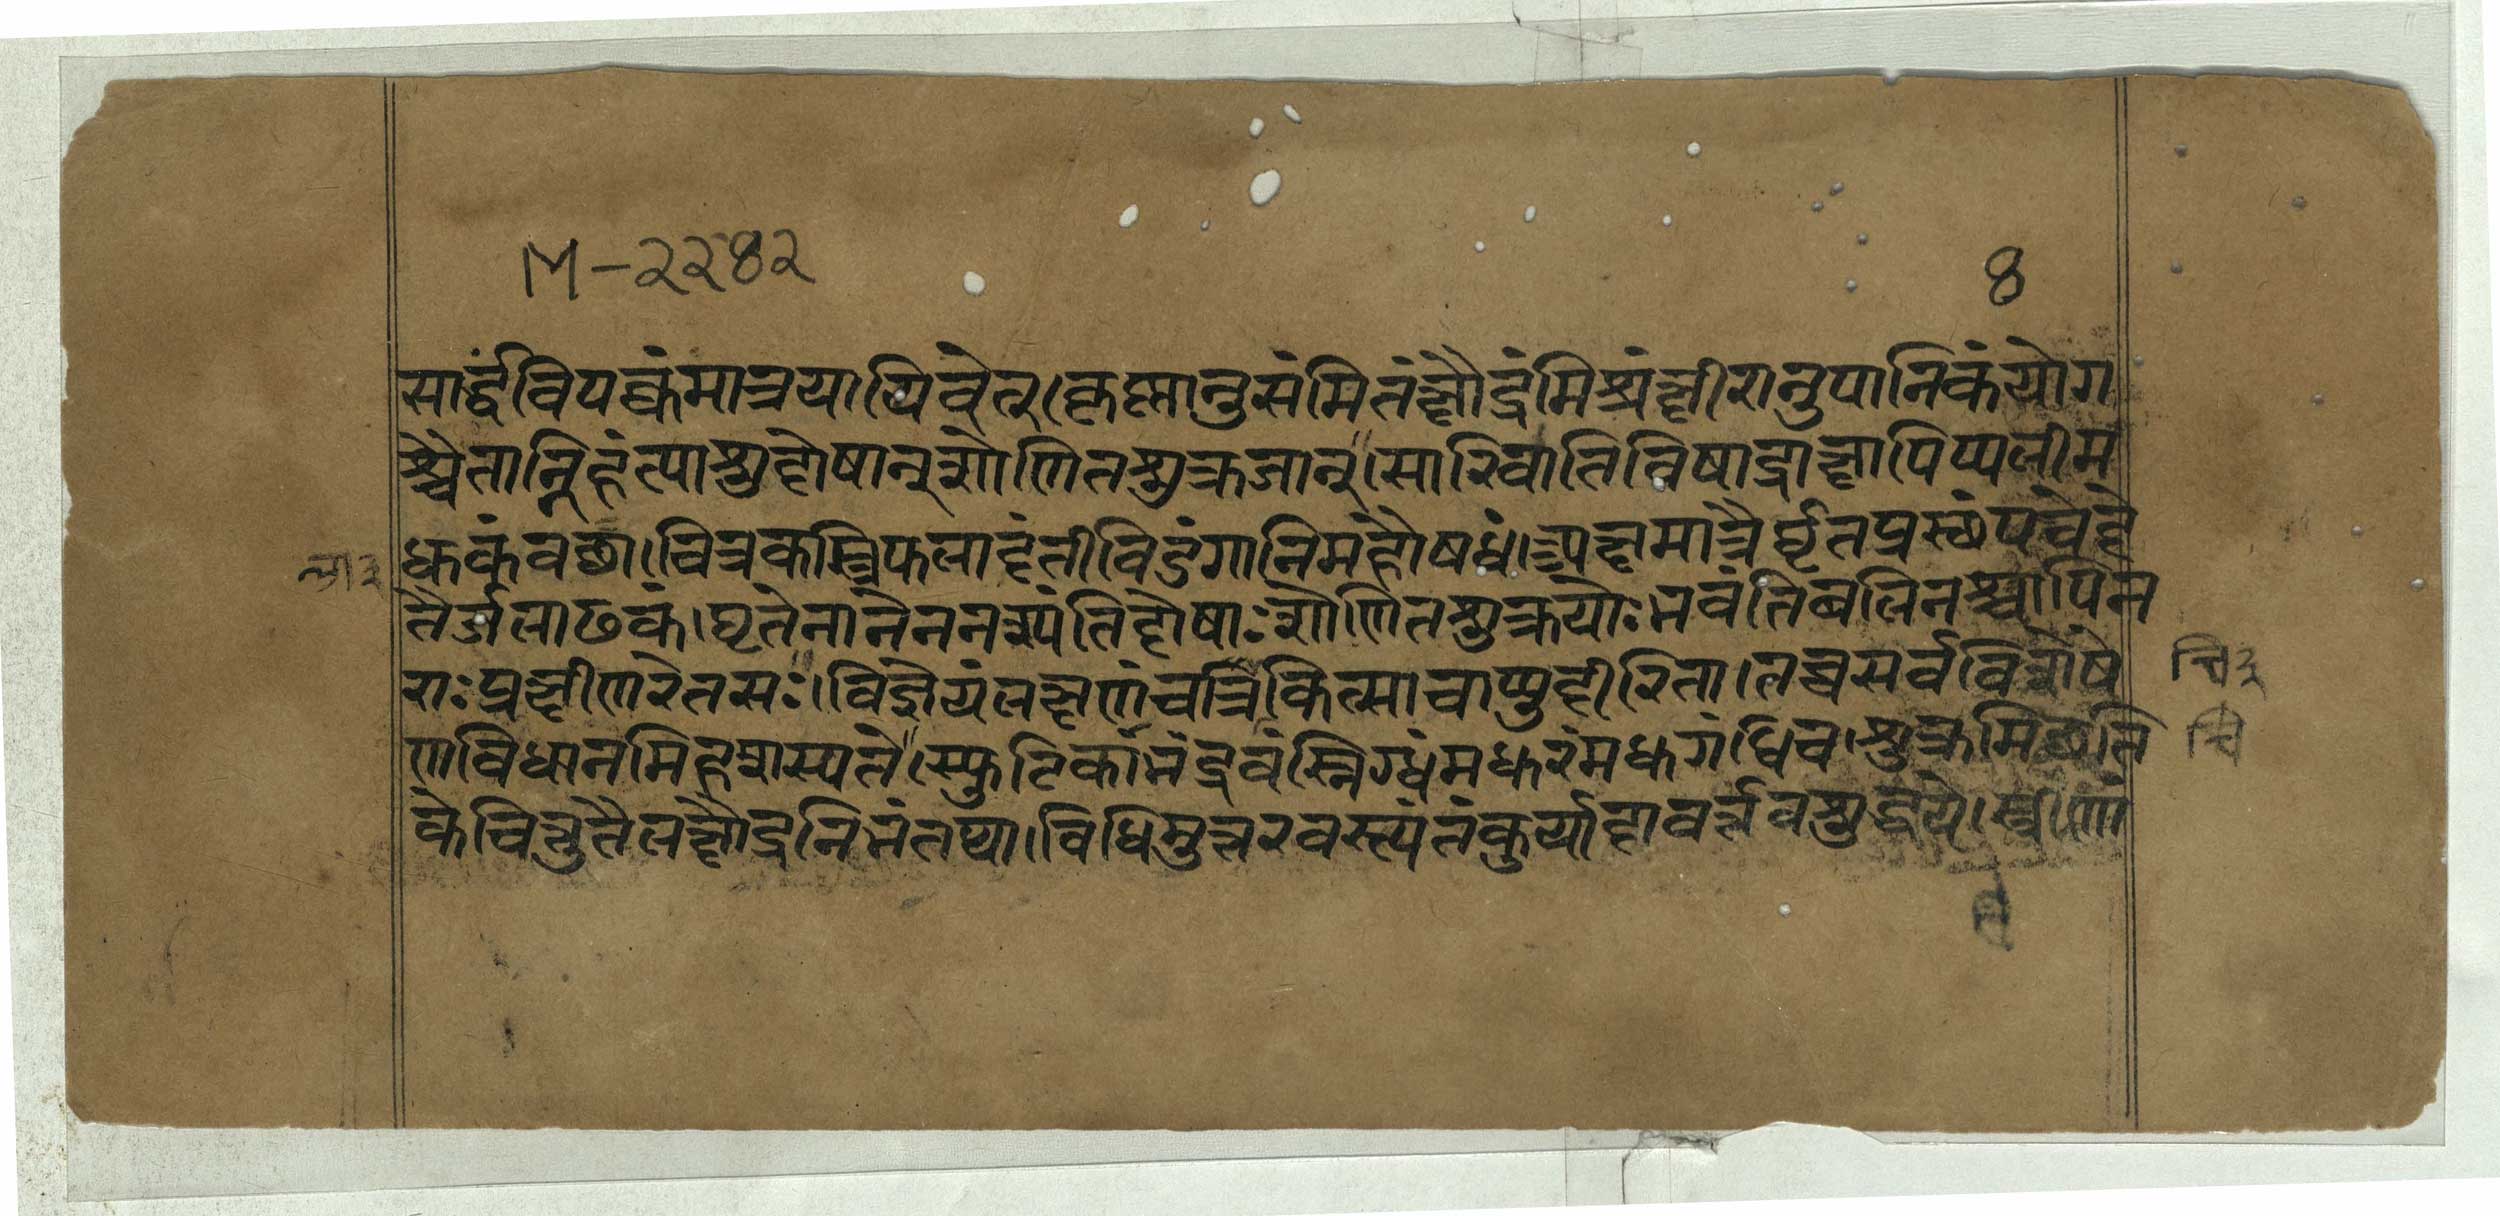 M-२२४२
४
सार्द्धंविपक्वंमात्रयापिबेत्।कृष्णानुसंमितंक्षौद्रंमिश्रंक्षीरानुपानिकंयोग
श्चैतान्निहंत्याशुदोषान्शोणितशुक्रजान्॥सारिवातिविषाद्राक्षापिप्पलीम
धुकंवचा।चित्रकस्त्रिफलादंतीविडंगानिमहौषधं।अक्षमात्रैर्घृतप्रस्थंपचेद्दे
तैर्जलाढकं।घृतेनानेननश्यंतिदोषाःशोणितशुक्रयोःभवंतिबलिनश्चापिन
राःप्रक्षीणरेतसः॥विज्ञेयंलक्षणंचचिकित्साचाप्युदीरिता।तच्चसर्वविशेषे
णविधानमिहशस्यते॥स्फटिकाभंद्रवंस्निग्धंमधुरंमधुगंधिच।शुक्रमिछंति
केचित्तुतैलक्षौद्रनिभंतथा।विधिमुत्तरवस्त्यंतंकुर्यादावर्त्तवशुद्धये।स्त्रीणां